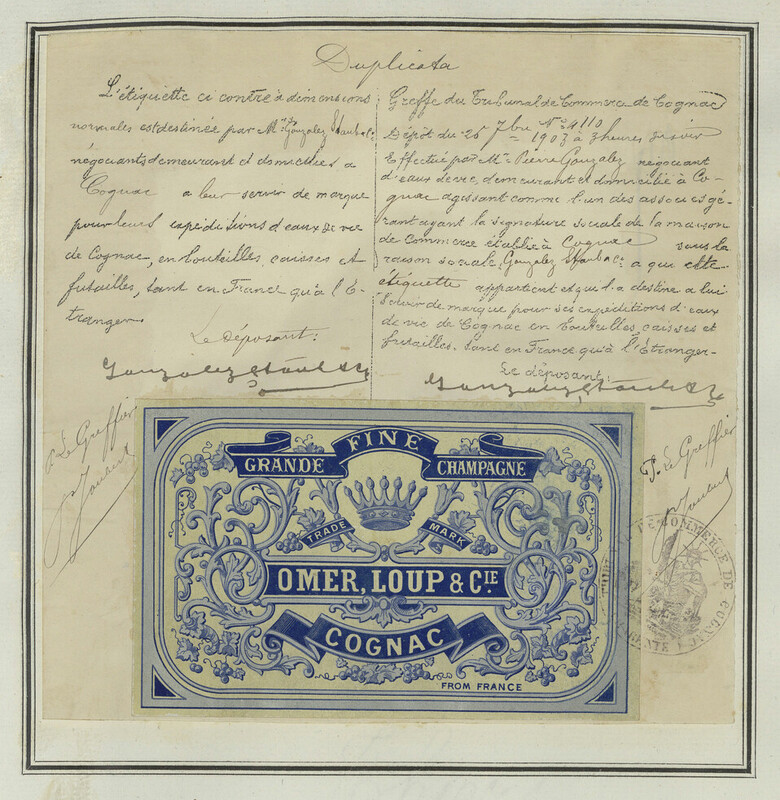 Duplicata
L'étiquette ci contre à dimensions
normales est destinée par Mrs Gonzalez Staub & Cie
négociants demeurant et domiciliés a
Cognac a leur servir de marque
pour leurs expéditions d'eaux de vie
de Cognac, en bouteilles, caisses et
futailles, tant en France qu'à l'É-
tranger.
Le déposant:
Gonzalez Staub & Cie
P. Le Greffier
Greffe du Tribunal de Commerce de Cognac
Dépôt du 25 7bre 1903 à 3 heures soir
No 4110
Effectué par Mr Pierre Gonzalez négociant
d'eaux de vie, demeurant et domicilié à Co-
gnac agissant comme l'un des associés gé-
rant ayant la signature sociale de la maison
de Commerce établie à Cognac sous la
raison sociale, Gonzalez Staub & Cie a qui cette
étiquette appartient et qui l'a destine a lui
servir de marque pour ses expéditions d'eaux
de vie de Cognac en bouteilles, caisses et
futailles. tant en France qu'à l'Étranger-
Le déposant:
Gonzalez Staub & Cie
P. Le Greffier
FINE
GRANDE CHAMPAGNE
TRADE MARK
OMER, LOUP & CIE
COGNAC
FROM FRANCE
DE COMMERCE DE COGNAC